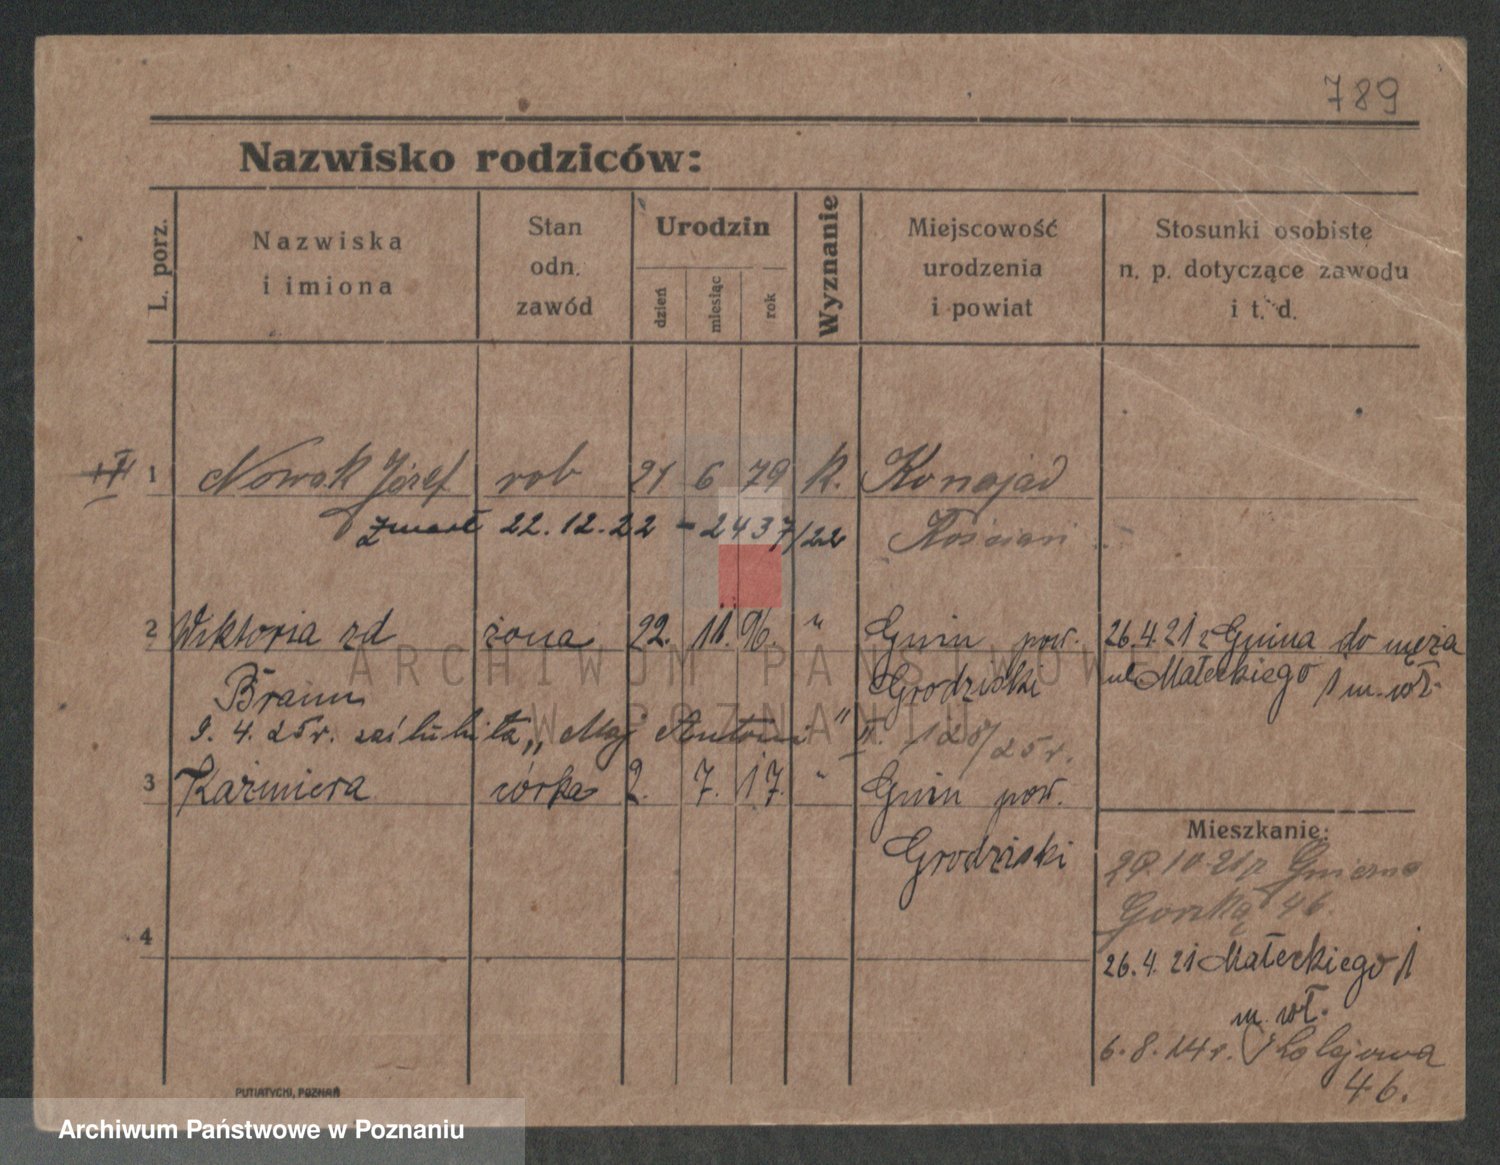 789
Nazwisko rodziców:
L. porz.
Nazwiska
i imiona
Stan
odn.
zawód
Urodzin
dzień
miesiąc
rok
Wyznanie
Miejscowość
urodzenia
i powiat
Stosunki osobiste
n. p. dotyczące zawodu
i t. d.
1 Nowak Józef rob 21 6 79 k. Konojad
zmarł 22.12.22 - 2437/22 Kościan
2 Wiktoria rd żona 22. 11. 96. " Gnin pow. 26.4.21 z Gnina do męża
Braun Grodziski ul Małeckiego 1 m. wł.
9. 4. 25r. zaślubiła „Maj Antoni" II. 128/25r.
3 Kazimiera córka 2. 7. 17. " Gnin pow.
Grodziski
Mieszkanie:
46.
4
26.4.21 Małeckiego 1
m. wł.
6.8.14r. Kolejowa
46.
PUTIATYCKI, POZNAŃ
ARCHIWUM PAŃSTWOWE
W POZNANIU
Archiwum Państwowe w Poznaniu